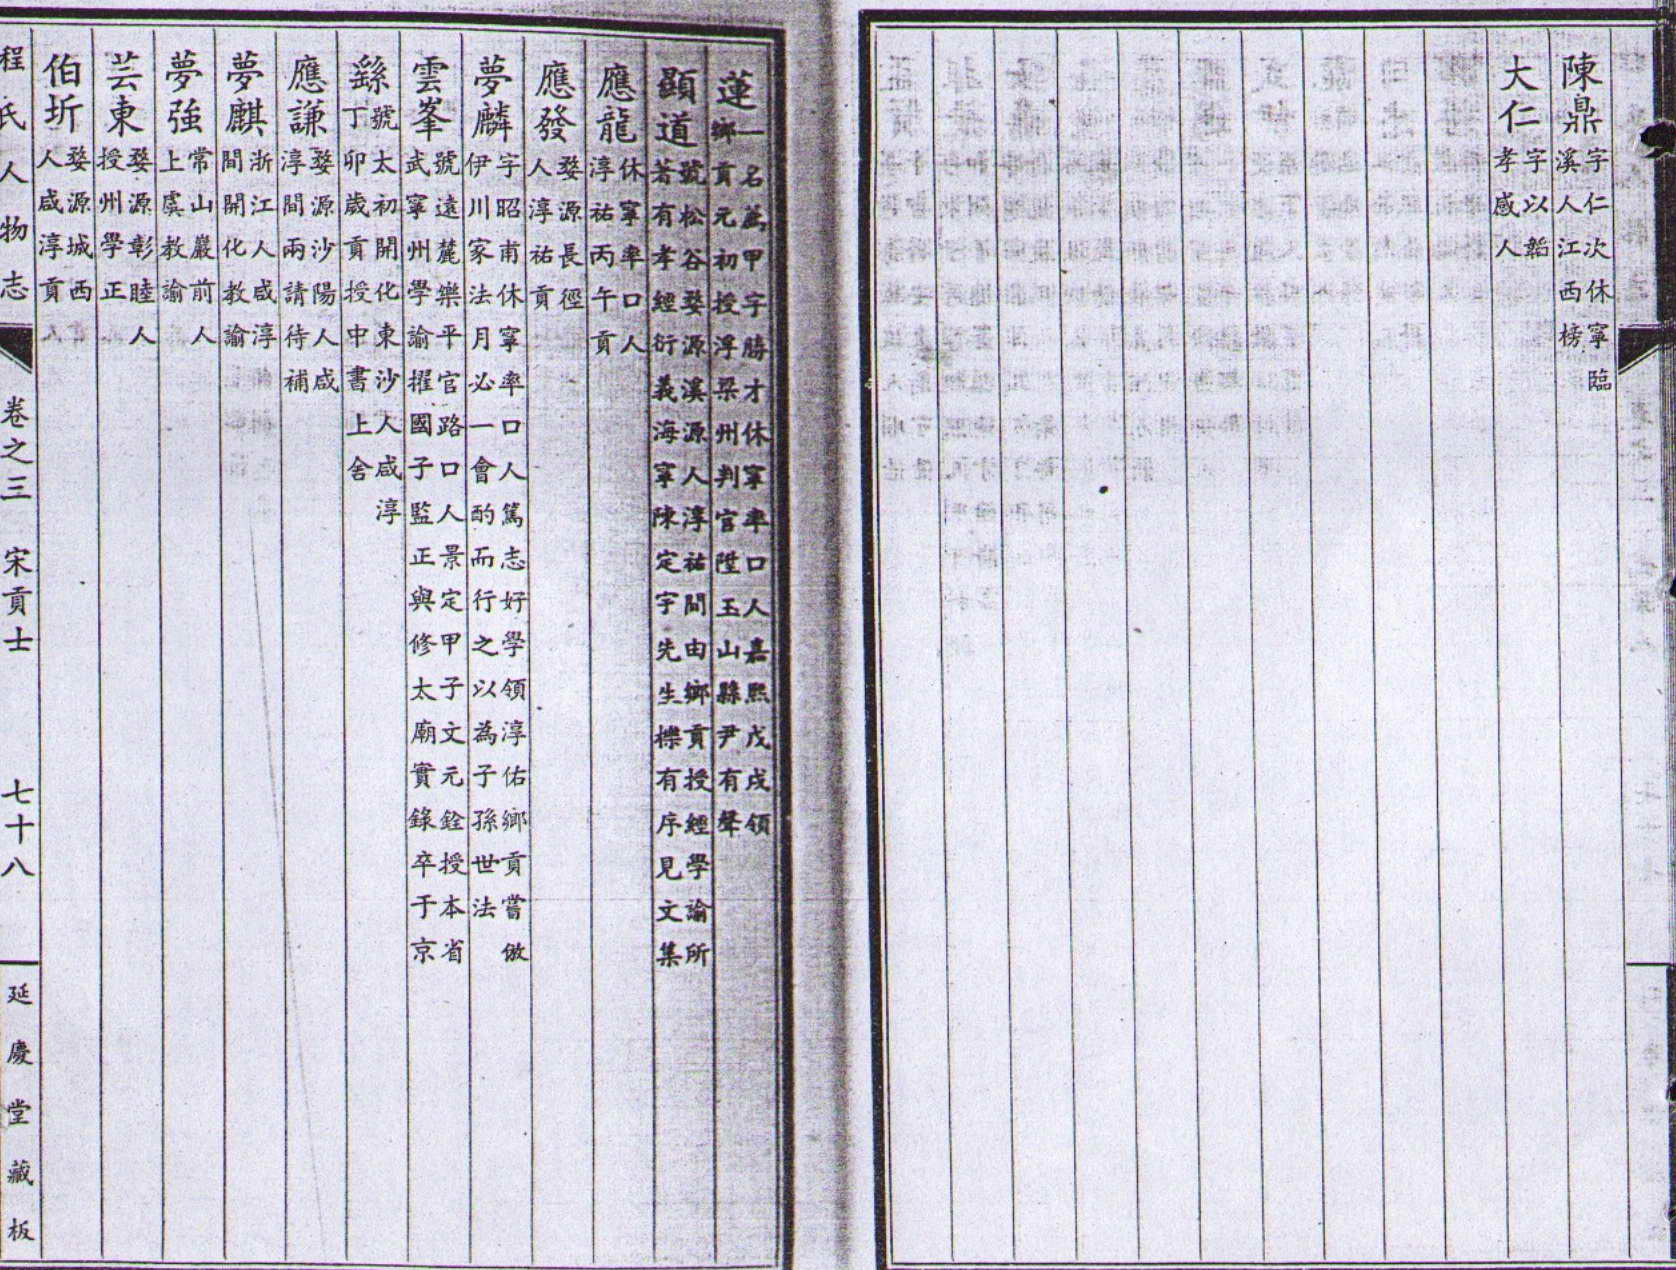 陳鼎 字仁次休寧臨
溪人江西榜
大仁 字以韜
孝感人
蓮 一名萬甲字勝才休寧率口人嘉熙戊戌領
鄉貢元初授浮梁州判官陞玉山縣尹有聲
顯道 號松谷婺源溪源人淳祐間由鄉貢授經學諭所
著有孝經衍義海寧陳定宇先生櫟有序見文集
應龍 休寧率口人
淳祐丙午貢
應發 婺源長徑
人淳祐貢
夢麟 字昭甫休寧率口人篤志好學領淳佑鄉貢嘗倣
伊川家法月必一會酌而行之以為子孫世法
雲峯 號遠麓樂平官路口人景定甲子文元銓授本省
武寧州學諭擢國子監正與修太廟實錄卒于京
繇 號太初開化東沙人咸淳
丁卯歲貢授中書上舍
應謙 婺源沙陽人咸
淳間兩請待補
夢麒 浙江人咸淳
間開化教諭
夢強 常山巖前人
上虞教諭
芸東 婺源彰睦人
授州學正
伯圻 婺源城西
人咸淳貢
程氏人物志 卷之三 宋貢士 七十八 延慶堂藏板